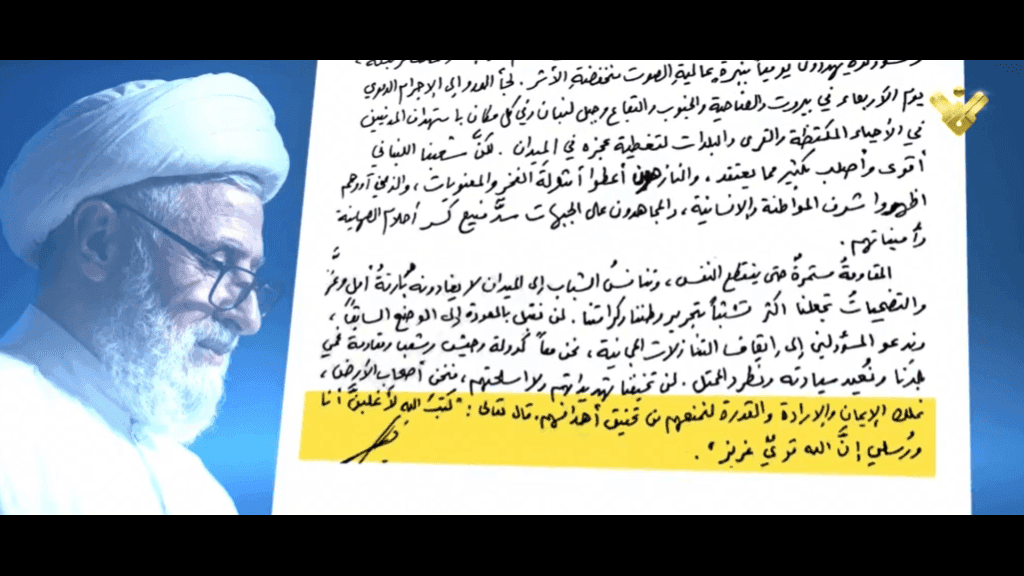 يومياً بنبرة عالية الصوت منخفضة الأثر. لجأ العدو إلى الإجرام الدموي
يوم الأربعاء في بيروت والضاحية والجنوب والبقاع وجبل لبنان وفي كل مكان باستهداف المدنيين
في الأحياء المكتظة والقرى والبلدات لتغطية عجزه في الميدان. لكنَّ شعبنا اللبناني
أقوى وأصلب بكثير مما يعتقد، والنازحون أعطوا أمثولة الفخر والمعنويات، والذين آووهم
أظهروا شرف المواطنة والإنسانية، والمجاهدون على الجبهات سدٌّ منيع كسر أحلام الصهاينة
وأمنياتهم.
المقاومةُ مستمرةٌ حتى ينقطع النفس، وتنافسُ الشباب إلى الميدان لا يغادرونه بُارقةُ أمل وعزّ
والتضحياتُ تجعلنا أكثر تشبثاً بتحرير وطننا وكرامتنا. لن نقبل بالعودة إلى الوضع السابق،
وندعو المسؤولين إلى إيقاف التنازلات المجانية، نحن معاً كدولة وجيش وشعب ومقاومة نحمي
بلدنا ونُعيد سيادته ونطرد المحتل. لن تخيفنا تهديداتهم ولا أسلحتهم، فنحن أصحاب الأرض،
نملك الإيمان والإرادة والقدرة لنمنعهم من تحقيق أهدافهم. قال تعالى: "كَتَبَ اللهِ لأَغلبنَّ أنا
ورُسلي إنَّ الله قويٌّ عزيز".